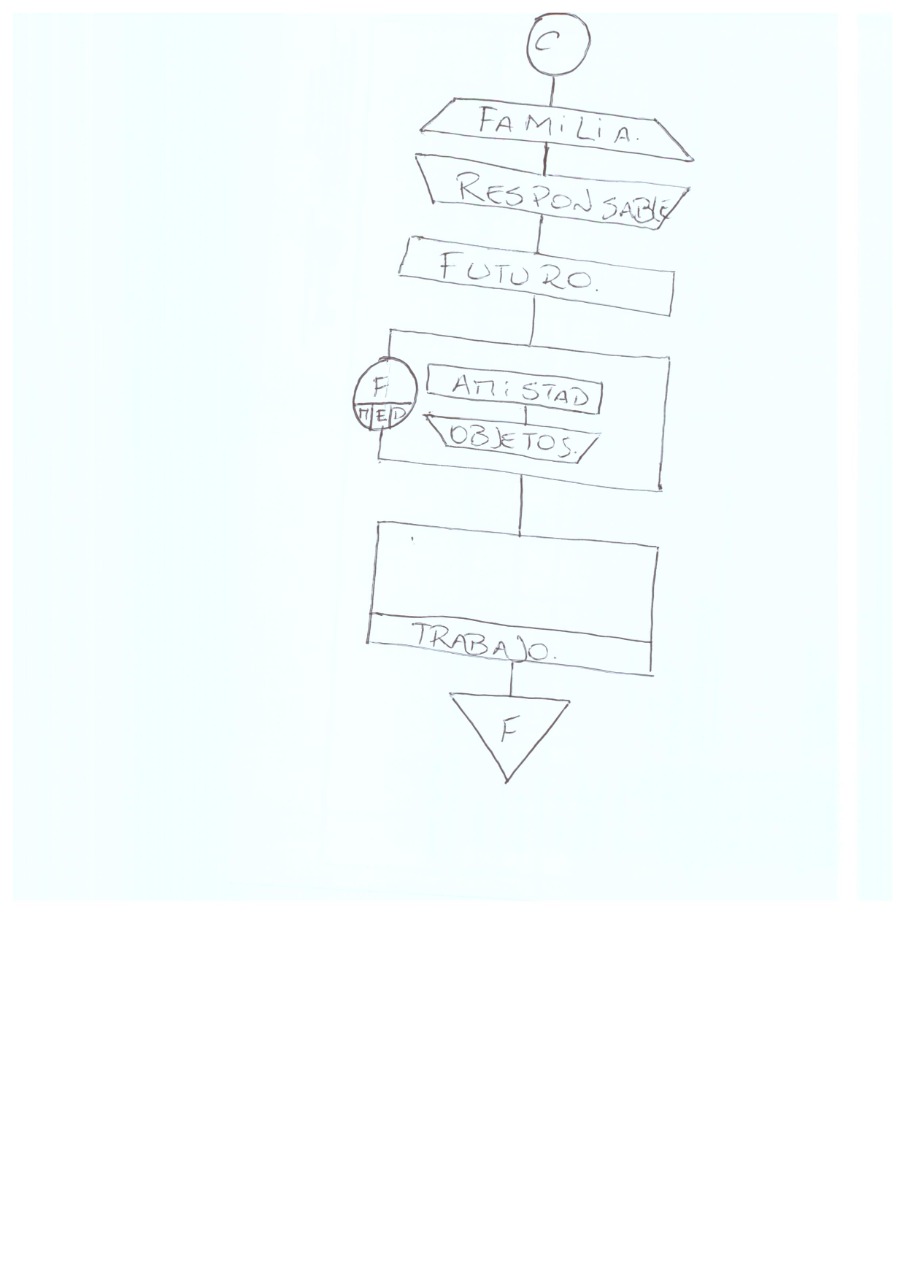 C
FAMiLiA.
RESPONSABLE
FUTURO.
F
M E D
AMiSTAD
OBJETOS.
TRABAJO.
F